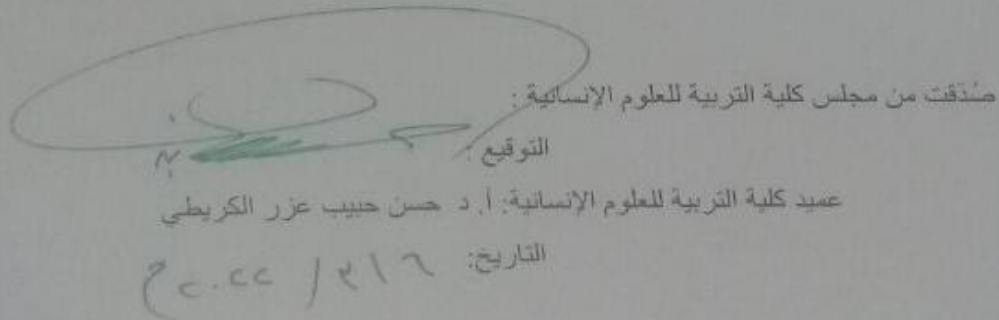 صُدّقت من مجلس كلية التربية للعلوم الإنسانية :
التوقيع :
عميد كلية التربية للعلوم الإنسانية: أ. د حسن حبيب عزر الكريطي
التاريخ: ٦ / ٣ / ٢٠٢٢ م